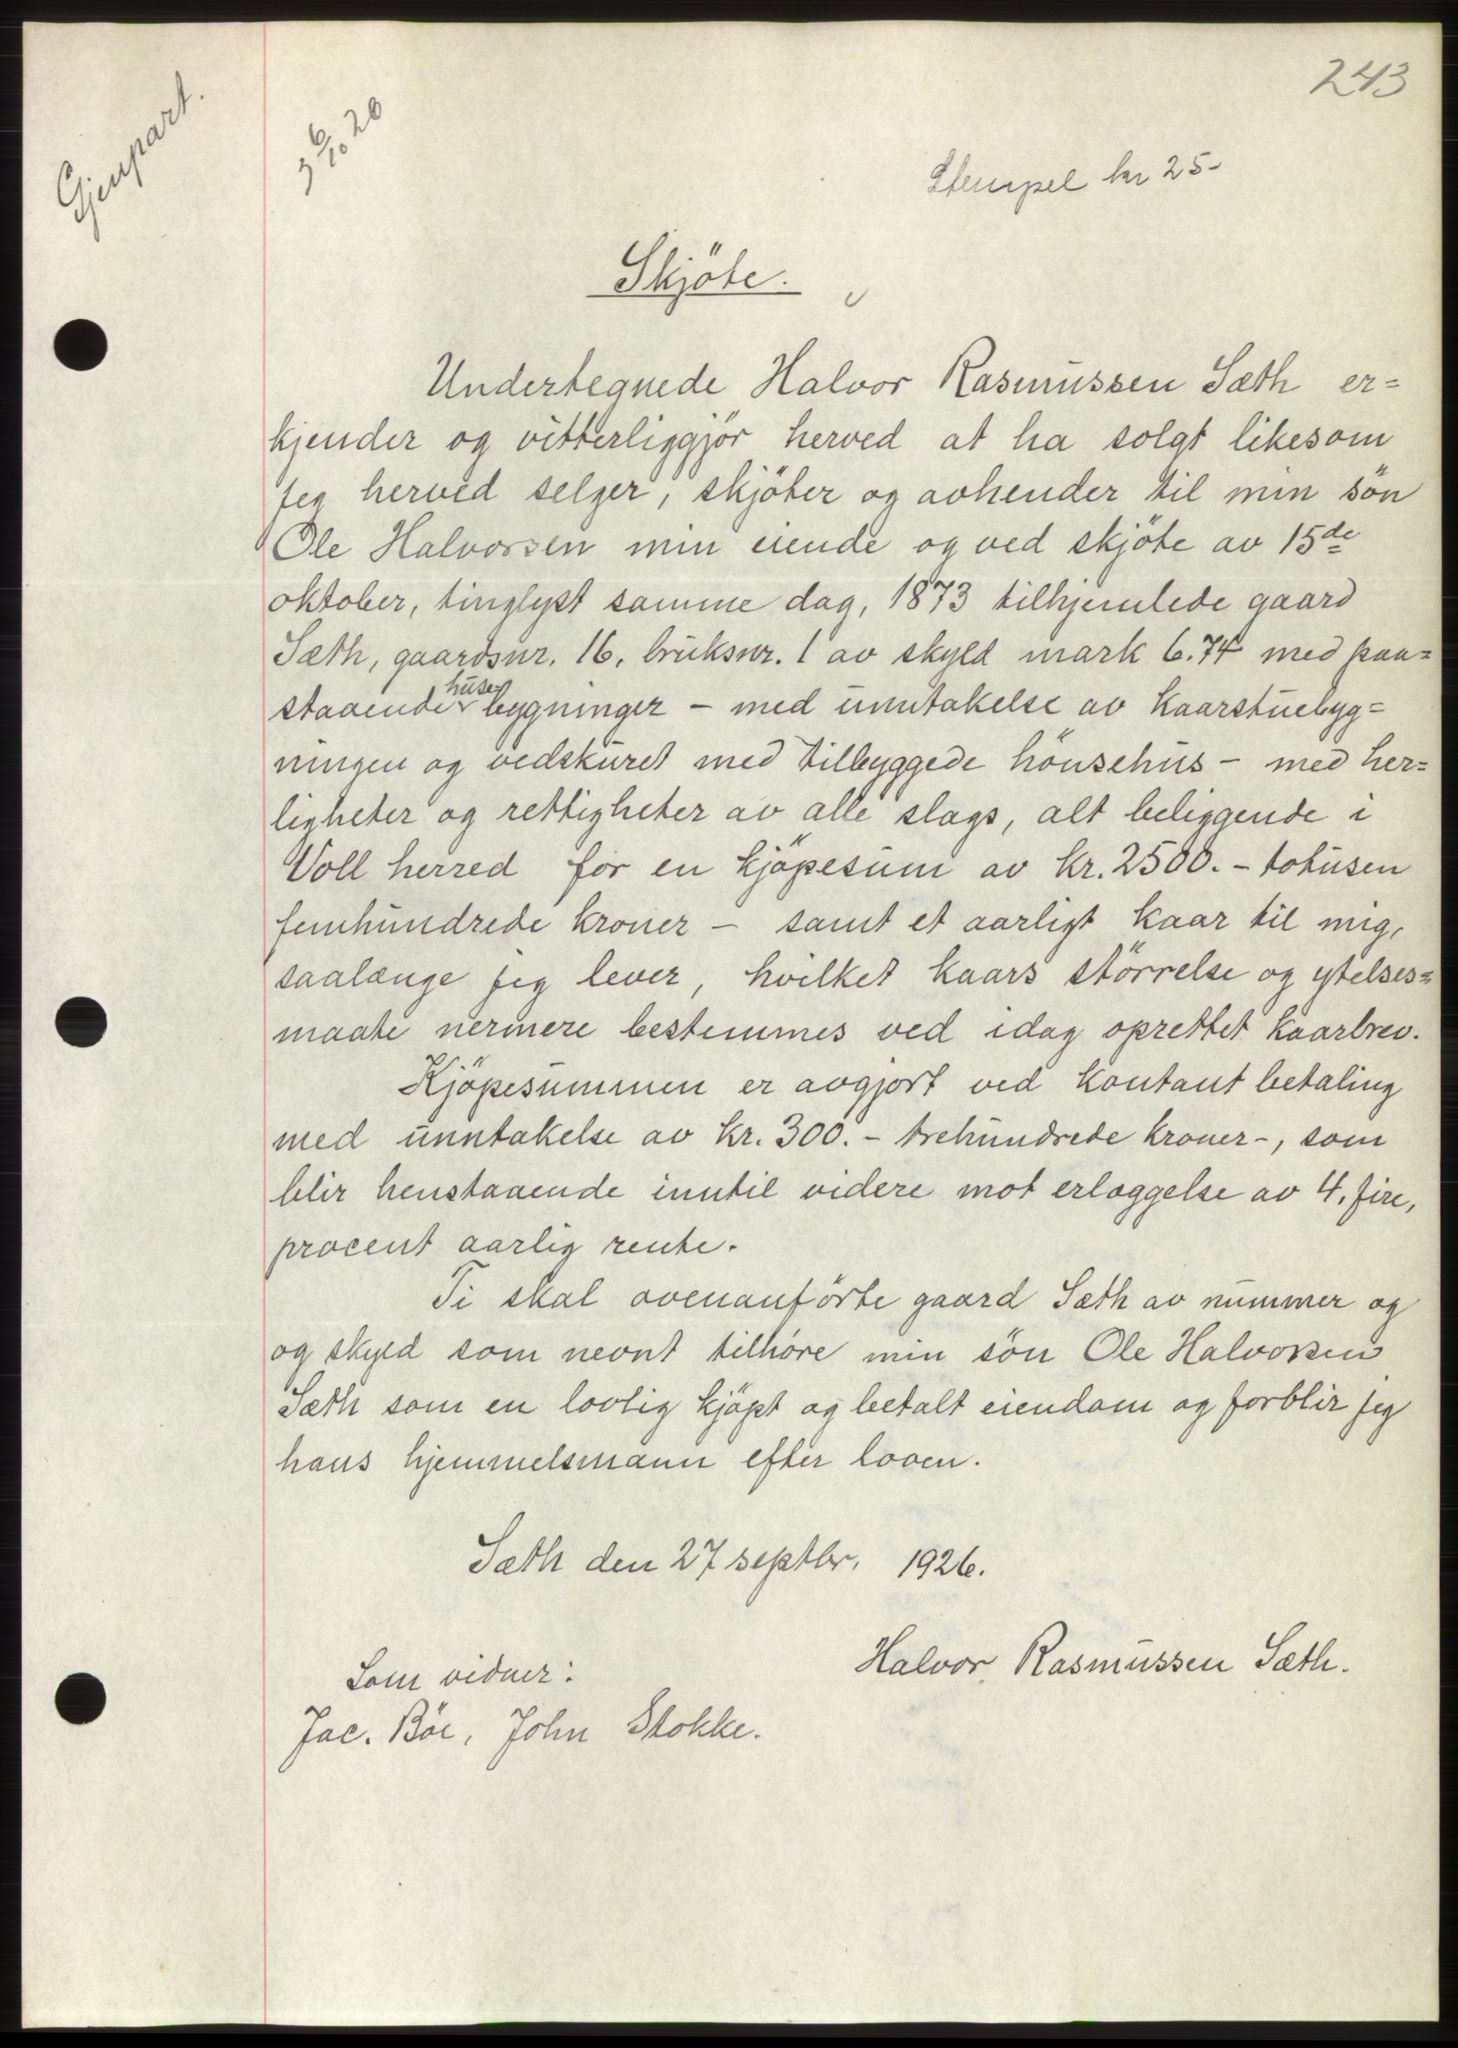 243
Gjenpart.
Stempel kr 25-
Skjöte.
Undertegnede Halvor Rasmussen Sæth er=
kjender og vitterliggjör herved at ha solgt likesom
jeg herved selger, skjöter og avhender til min sön
Ole Halvorsen min eiende og ved skjöte av 15de
oktober, tinglyst samme dag, 1873 tilhjemlede gaard
Sæth, gaardsnr. 16, bruksnr. 1 av skyld mark 6.74 med paa=
staaende huse bygninger – med unntakelse av kaarstuebyg=
ningen og vedskuret med tilbyggede hönsehus – med her=
ligheter og rettigheter av alle slags, alt beliggende i
Voll herred for en kjöpesum av kr. 2500. – totusen
femhundrede kroner – samt et aarligt kaar til mig,
saalænge jeg lever, hvilket kaars störrelse og ytelses=
maate nermere bestemmes ved idag oprettet kaarbrev.
Kjöpesummen er avgjort ved kontant betaling
med unntakelse av kr. 300. – trehundrede kroner –, som
blir henstaaende inntil videre mot erlæggelse av 4, fire,
procent aarlig rente.
Ti skal ovenanförte gaard Sæth av nummer og
og skyld som nevnt tilhöre min sön Ole Halvorsen
Sæth som en lovlig kjöpt og betalt eiendom og forblir jeg
hans hjemmelsmann efter loven.
Sæth den 27 septbr. 1926.
Halvor Rasmussen Sæth.
Som vidner:
Jac. Böe, John Stokke.